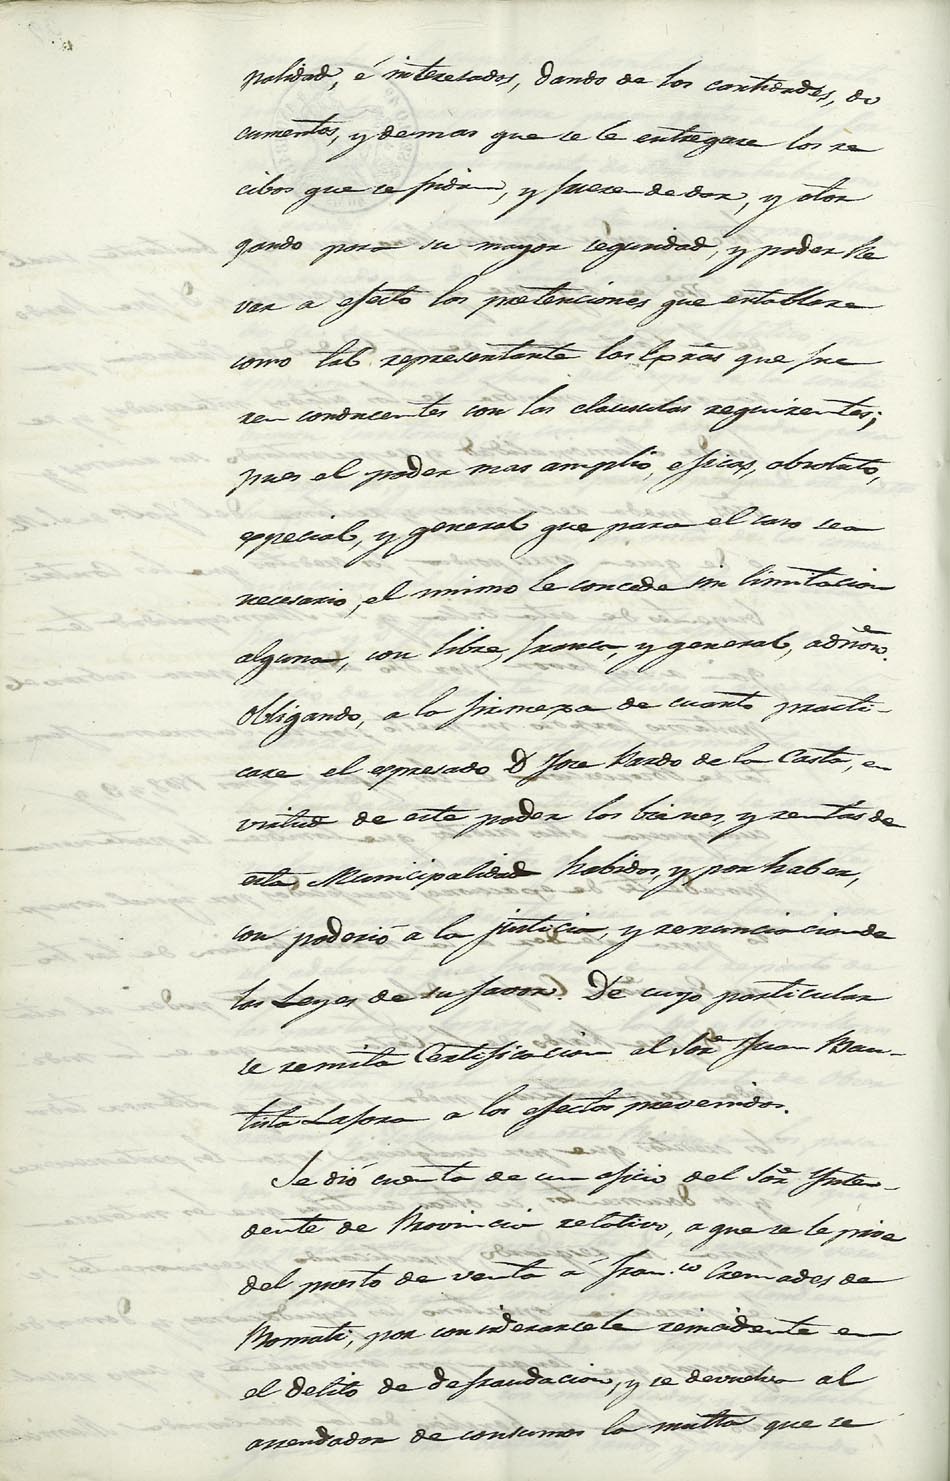 palidad, é interesados, dando de las cantidades, do
cumentos, y demas que se le entregare los re
cibos que se pidan, y fuere de dar, y otor
gando para su mayor seguridad, y poder lle
var a efecto las pretenciones que entablare
como tal representante las Epras que fue
ren conducentes con las clausulas requirentes;
pues el poder mas amplio, eficas, absoluto,
especial, y general que para el caso sea
necesario, el mismo le concede sin limitacion
alguna, con libre, franca, y general, admon.
Obligando, a la firmeza de cuanto practi-
care el espresado D. Jose Pardo de la Casta, en
virtud de este poder los bienes, y rentas de
esta Municipalidad habidos, y por haber,
con poderio a la justicia, y renunciacion de
las Leyes de su favor. De cuyo particular
se remita Certificacion al Sor. Juan Bau-
tista Lafora a los efectos prevenidos.
Se dió cuenta de un oficio del Sor. Inten-
dente de Provincia relativo, a que se le prive
del puesto de venta á Fran.co Cremades de
Monnati, por considerarcele reincidente en
el delito de defraudacion, y se devuelva al
arrendador de consumos la multa que se